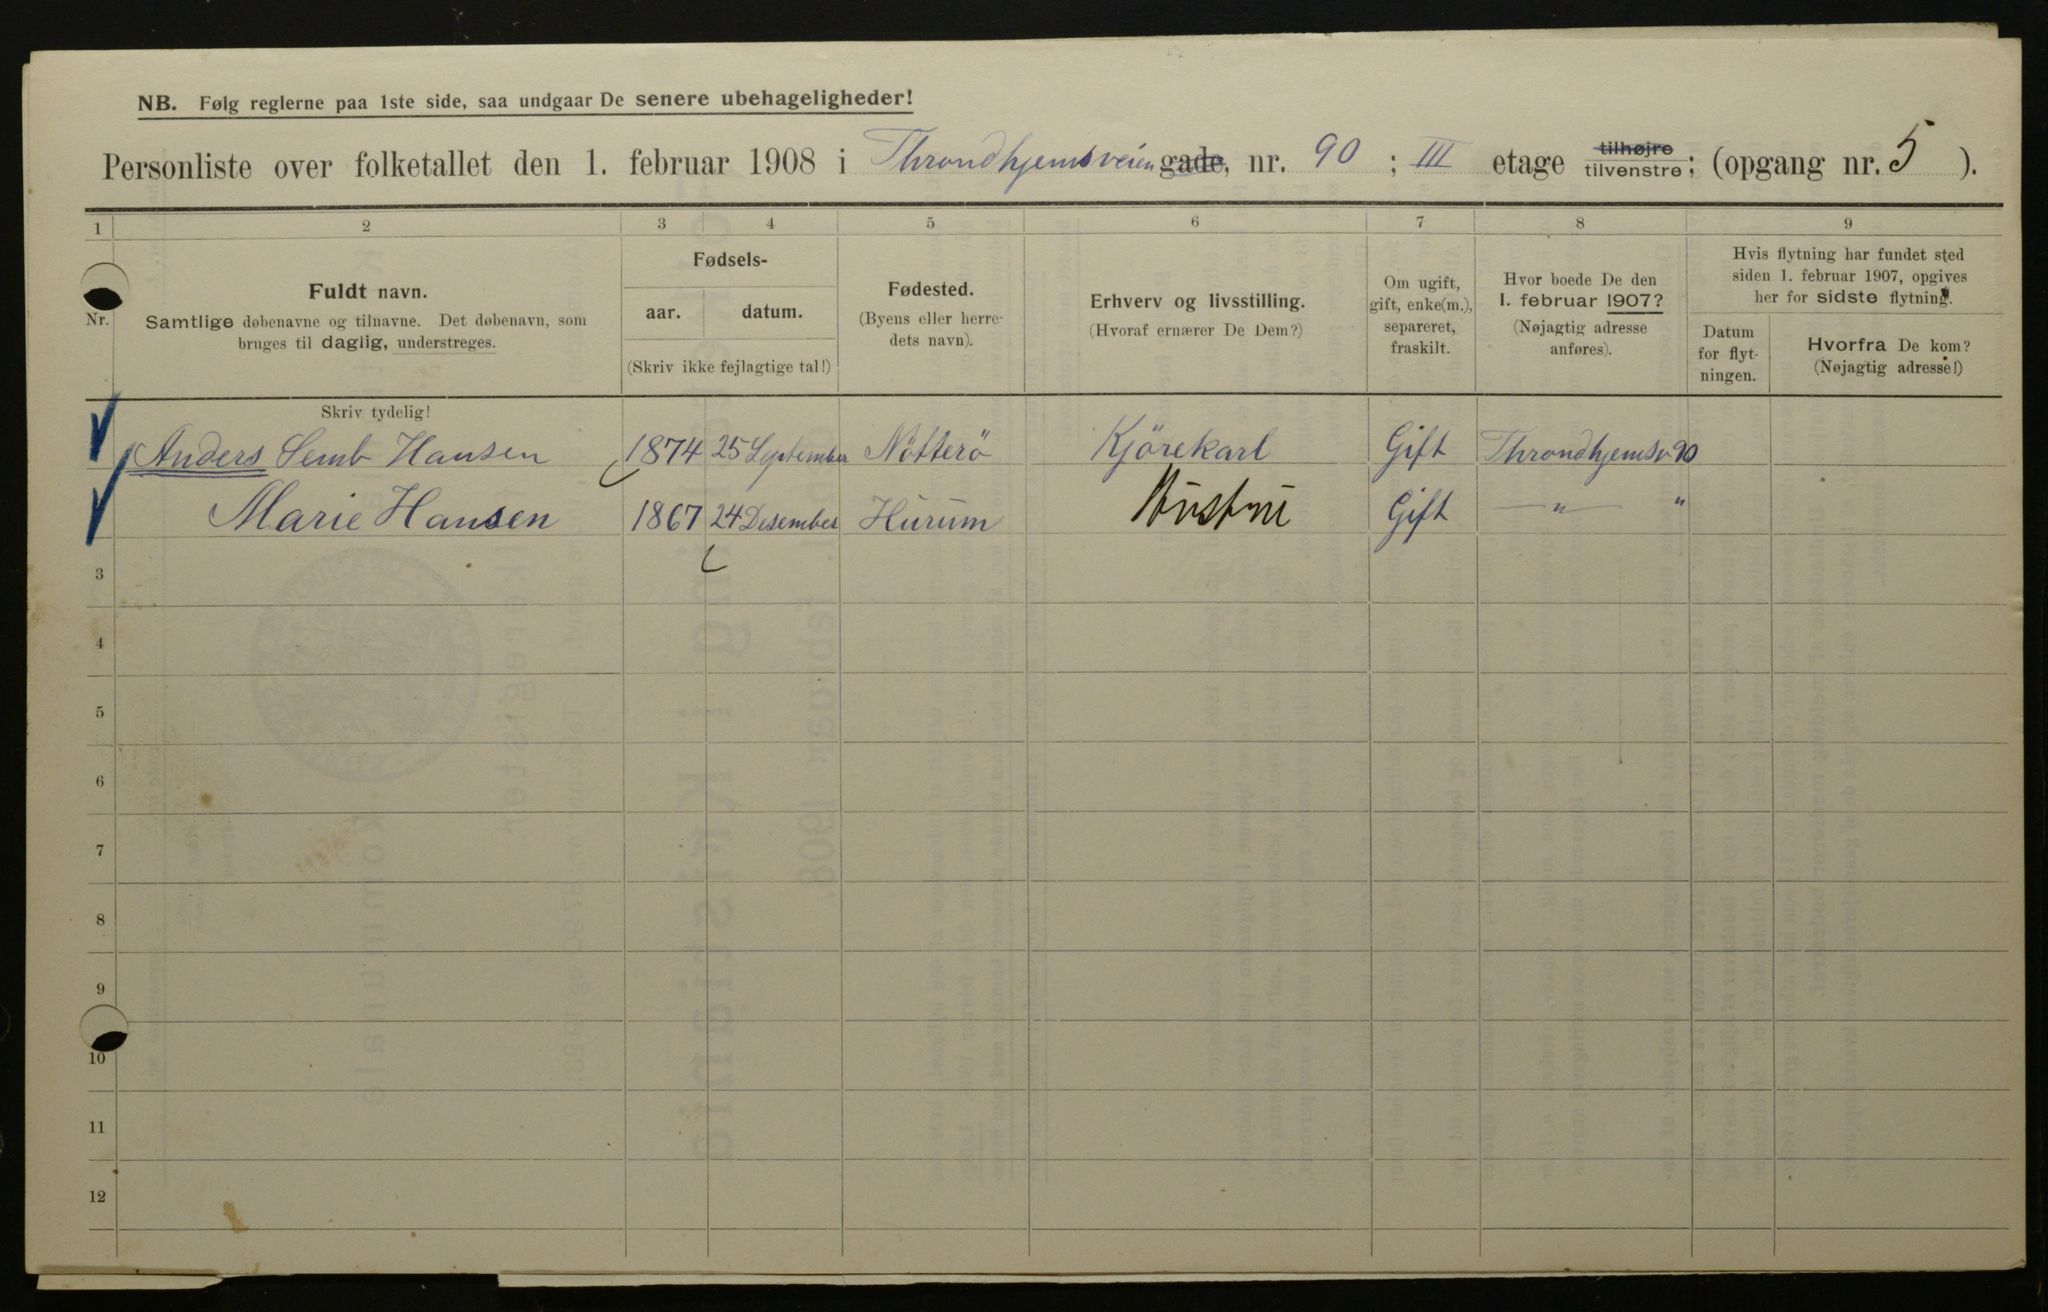 NB. Følg reglerne paa 1ste side, saa undgaar De senere ubehageligheder!
Personliste over folketallet den 1. februar 1908 i Throndhjemsveien gade, nr. 90 ; III etage tilhøjre tilvenstre; (opgang nr. 5 ).
1 2 3 4 5 6 7 8 9
Nr.
Fuldt navn.
Samtlige døbenavne og tilnavne. Det døbenavn, som
bruges til daglig, understreges.
Fødsels-
aar. datum.
(Skriv ikke fejlagtige tal!)
Fødested.
(Byens eller herre-
dets navn).
Erhverv og livsstilling.
(Hvoraf ernærer De Dem?)
Om ugift,
gift, enke(m.),
separeret,
fraskilt.
Hvor boede De den
1. februar 1907?
(Nøjagtig adresse
anføres).
Hvis flytning har fundet sted
siden 1. februar 1907, opgives
her for sidste flytning.
Datum
for flyt-
ningen.
Hvorfra De kom?
(Nøjagtig adresse!)
Skriv tydelig!
Anders Semb Hansen 1874 25 September Nötterö Kjörekarl Gift Throndhjemsv 90
Marie Hansen 1867 24 Desember Hurum Hustru Gift — „ — „
3
4
5
6
7
8
9
10
11
12